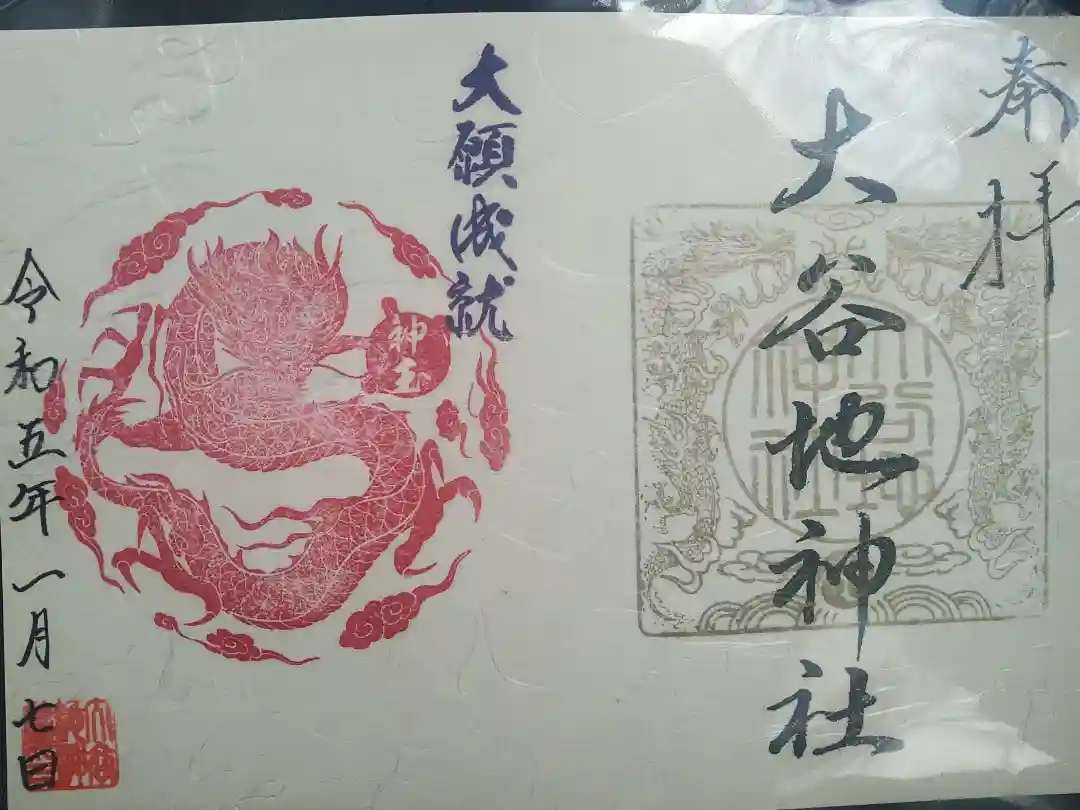 奉拝
大谷地神社
大願成就
神主
令和五年一月七日